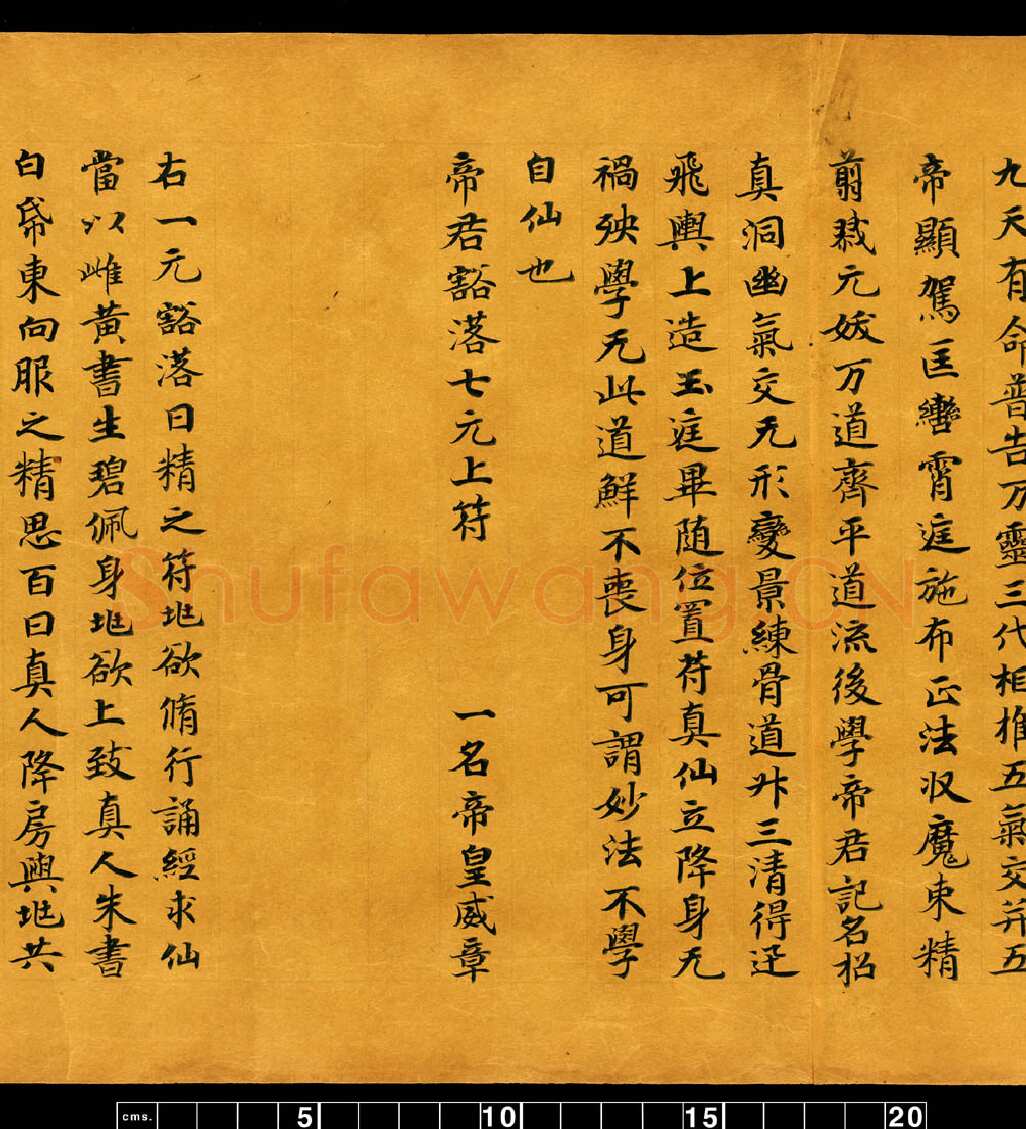 九天有命普告万靈三代相推五氣交并五
帝顯駕匡轡霄庭施布正法収魔束精
翦元妖万道齊平道流後學帝君記名招
真洞幽氣交无形變景練骨道升三清得
飛輿上造玉庭畢随位置苻真仙立降身无
禍殃學无此道鮮不喪身可謂妙法不學
自仙也
帝君豁落七元上苻 一名帝皇威章
右一元豁落日精之苻兆欲脩行誦經求仙
當以雌黃書生碧佩身兆欲上致真人朱書
白帋東向服之精思百日真人降房與兆共
Shufawang.CN
cms. 5 10 15 20